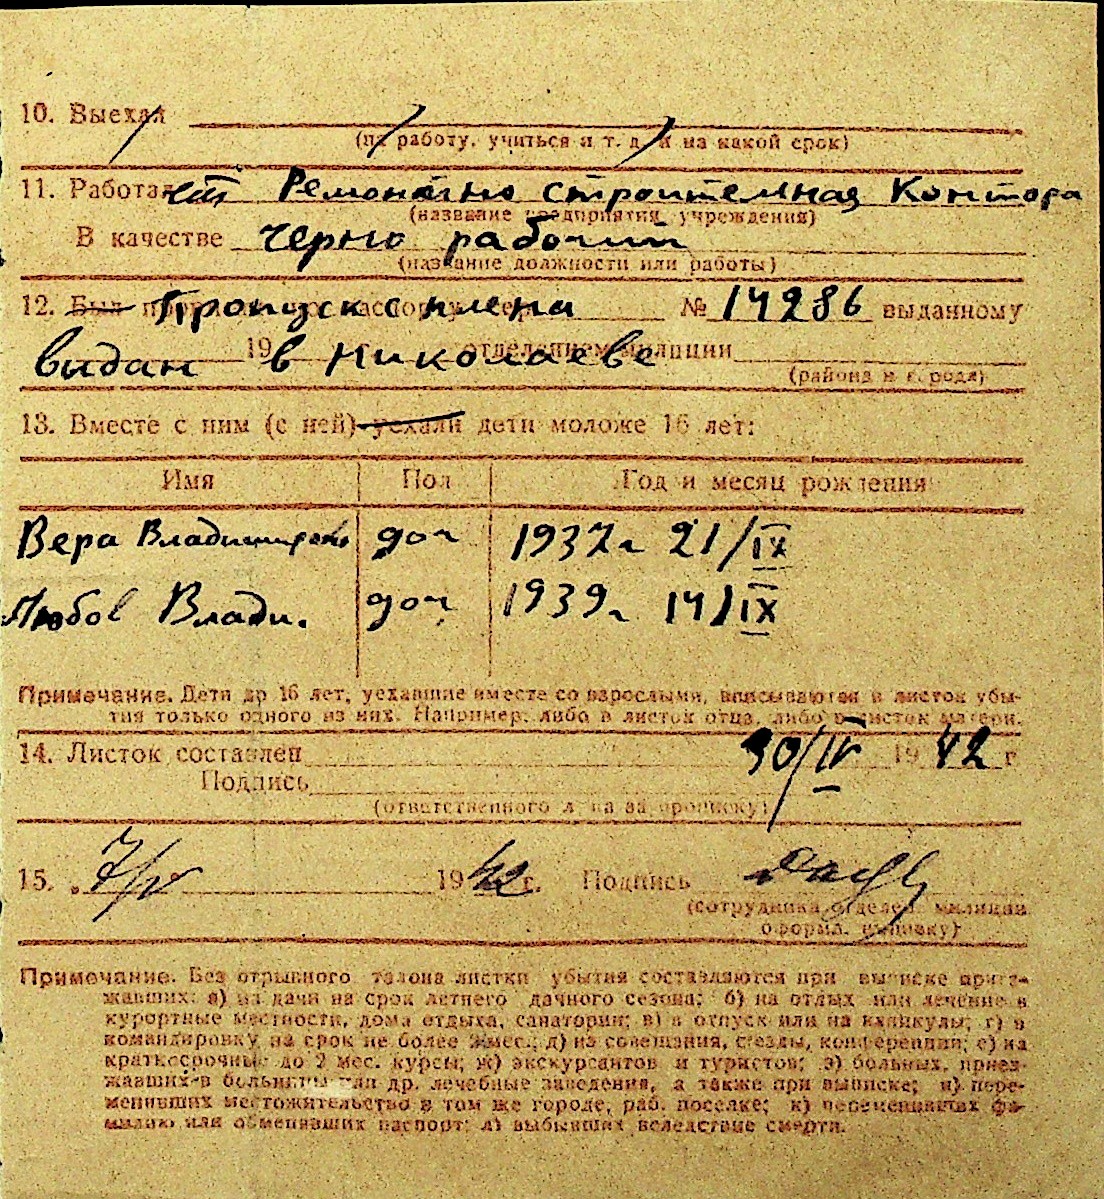 10. Выехал
(на работу, учиться и т. д. и на какой срок)
11. Работает Ремонтно строительная Контора
(название предприятия, учреждения)
В качестве черно рабочий
(название должности или работы)
12. Был Пропуск с плена № 14286 выданному
выдан 19 в Николаеве отделением милиции
(района и города)
13. Вместе с ним (с ней) уехали дети моложе 16 лет:
Имя Пол Год и месяц рождения
Вера Владимировн доч 1937 г 21/IX
Любов Влади. доч 1939 г 14/IX
Примечание. Дети до 16 лет, уехавшие вместе со взрослыми, вписываются в листок убы-
тия только одного из них. Например, либо в листок отца, либо в листок матери.
14. Листок составлен 30/IV 1942 г
Подпись
(ответственного лица за прописку)
15. „7/V" 1942 г. Подпись
(сотрудника отделен. милиции
оформл. выписку)
Примечание. Без отрывного талона листки убытия составляются при выписке приез-
жавших: а) на дачи на срок летнего дачного сезона; б) на отдых или лечение в
курортные местности, дома отдыха, санатории; в) в отпуск или на каникулы; г) в
командировку на срок не более 2 мес.; д) на совещания, съезды, конференции; е) на
краткосрочные до 2 мес. курсы; ж) экскурсантов и туристов; з) больных, приез-
жавших в больницы или др. лечебные заведения, а также при выписке; и) пере-
менивших местожительство в том же городе, раб. поселке; к) переменивших фа-
милию или обменивших паспорт; л) выбывших вследствие смерти.